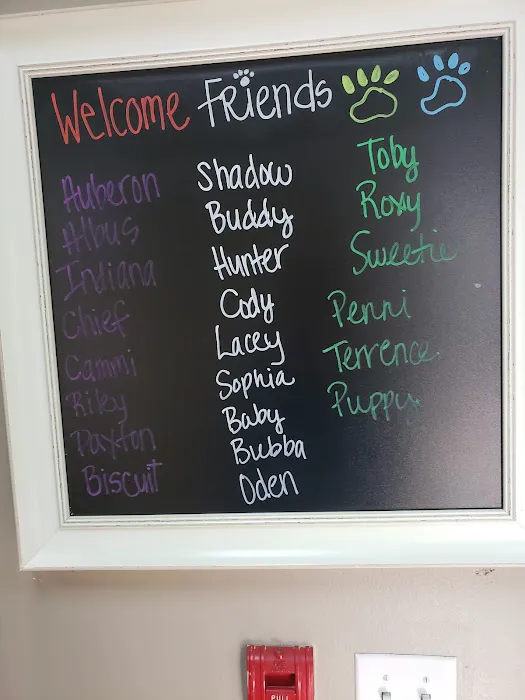 Welcome Friends
Auberon
Albus
Indiana
Chief
Cammi
Riley
Paxton
Biscuit
Shadow
Buddy
Hunter
Cody
Lacey
Sophia
Baby
Bubba
Oden
Toby
Roxy
Sweetie
Penni
Terrence
Puppy
PULL